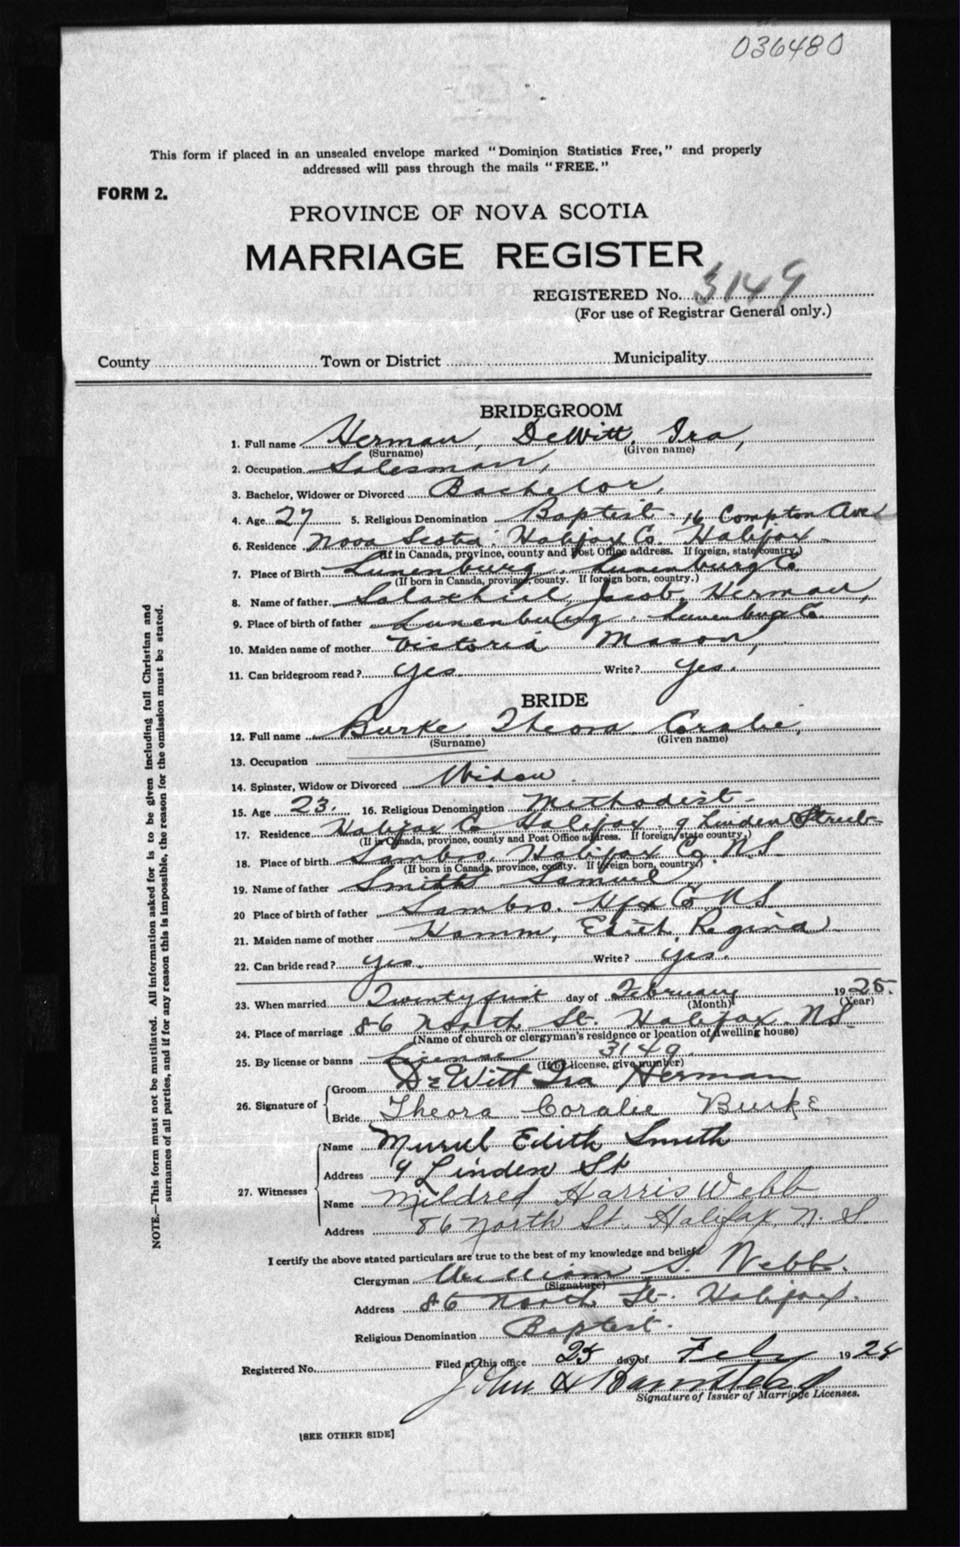 036480
This form if placed in an unsealed envelope marked "Dominion Statistics Free," and properly
addressed will pass through the mails "FREE."
FORM 2.
PROVINCE OF NOVA SCOTIA
MARRIAGE REGISTER
REGISTERED No. 3149
(For use of Registrar General only.)
County Town or District Municipality
BRIDEGROOM
1. Full name Herman, DeWitt, Ira,
(Surname) (Given name)
2. Occupation Salesman,
3. Bachelor, Widower or Divorced Bachelor,
4. Age 27 5. Religious Denomination Baptist - 16 Compton Ave
6. Residence Nova Scotia, Halifax Co. Halifax
(If in Canada, province, county and Post Office address. If foreign, state country.)
7. Place of Birth Lunenburg, Lunenburg Co
(If born in Canada, province, county. If foreign born, country.)
8. Name of father Jacob, Herman,
9. Place of birth of father Lunenburg, Lunenburg Co.
10. Maiden name of mother Victoria Mason,
11. Can bridegroom read? yes. Write? yes.
BRIDE
12. Full name Burke, Theora
(Surname) (Given name)
13. Occupation
14. Spinster, Widow or Divorced Widow.
15. Age 23. 16. Religious Denomination Methodist -
17. Residence Halifax Co Halifax, 9 Linden Street
(If in Canada, province, county and Post Office address. If foreign, state country.)
18. Place of birth Sambro, Halifax Co, N.S.
(If born in Canada, province, county. If foreign born, country.)
19. Name of father Smith Samuel
20 Place of birth of father Sambro. Hfx Co N.S
21. Maiden name of mother Hamm, Edith, Regina
22. Can bride read? yes. Write? yes.
23. When married Twenty first day of February 1925.
(Month) (Year)
24. Place of marriage 86 North St. Halifax. N.S.
(Name of church or clergyman's residence or location of dwelling house)
25. By license or banns License 3149.
(If by license, give number)
26. Signature of
Groom DeWitt Ira Herman
Bride Theora Coralie Burke
27. Witnesses
Name Muriel Edith Smith
Address 9 Linden St
Name Mildred Harris Webb
Address 86 North St, Halifax, N. S.
I certify the above stated particulars are true to the best of my knowledge and belief
Clergyman William S. Webb.
(Signature)
Address 86 North St. Halifax.
Religious Denomination Baptist.
Registered No. Filed at this office 25 day of Feby 19
John H Barnstead
Signature of Issuer of Marriage Licenses.
[SEE OTHER SIDE]
NOTE.—This form must not be mutilated. All information asked for is to be given including full Christian and
surnames of all parties, and if for any reason this is impossible, the reason for the omission must be stated.